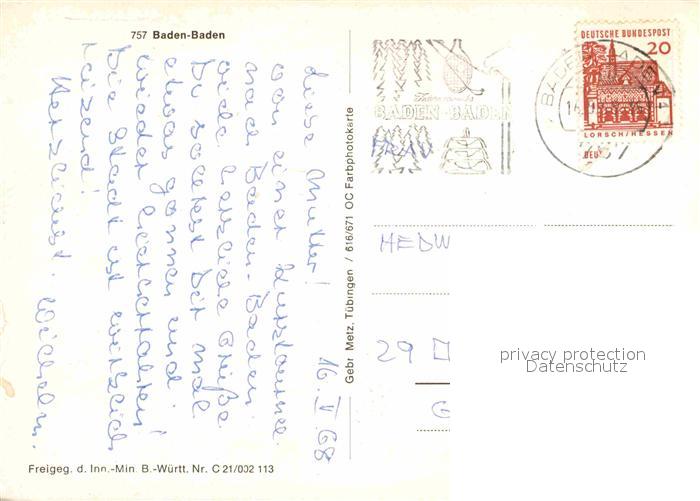 757 Baden-Baden
DEUTSCHE BUNDESPOST
20
LORSCH/HESSEN
BADEN-BADEN
BADEN-BADEN
757
FRAU
HEDW
29
G
privacy protection
Datenschutz
Gebr Metz, Tübingen / 616/671 OC Farbphotokarte
16. V. 68
Mutter!
von einer
nach Baden-Baden
viele herzliche Grüße.
Du solltest Dir mal
etwas gönnen und
wieder
Die Stadt ist wirklich
reizend!
Herzlichst. Wilhelm.
Freigeg. d. Inn.-Min B.-Württ. Nr. C 21/002 113